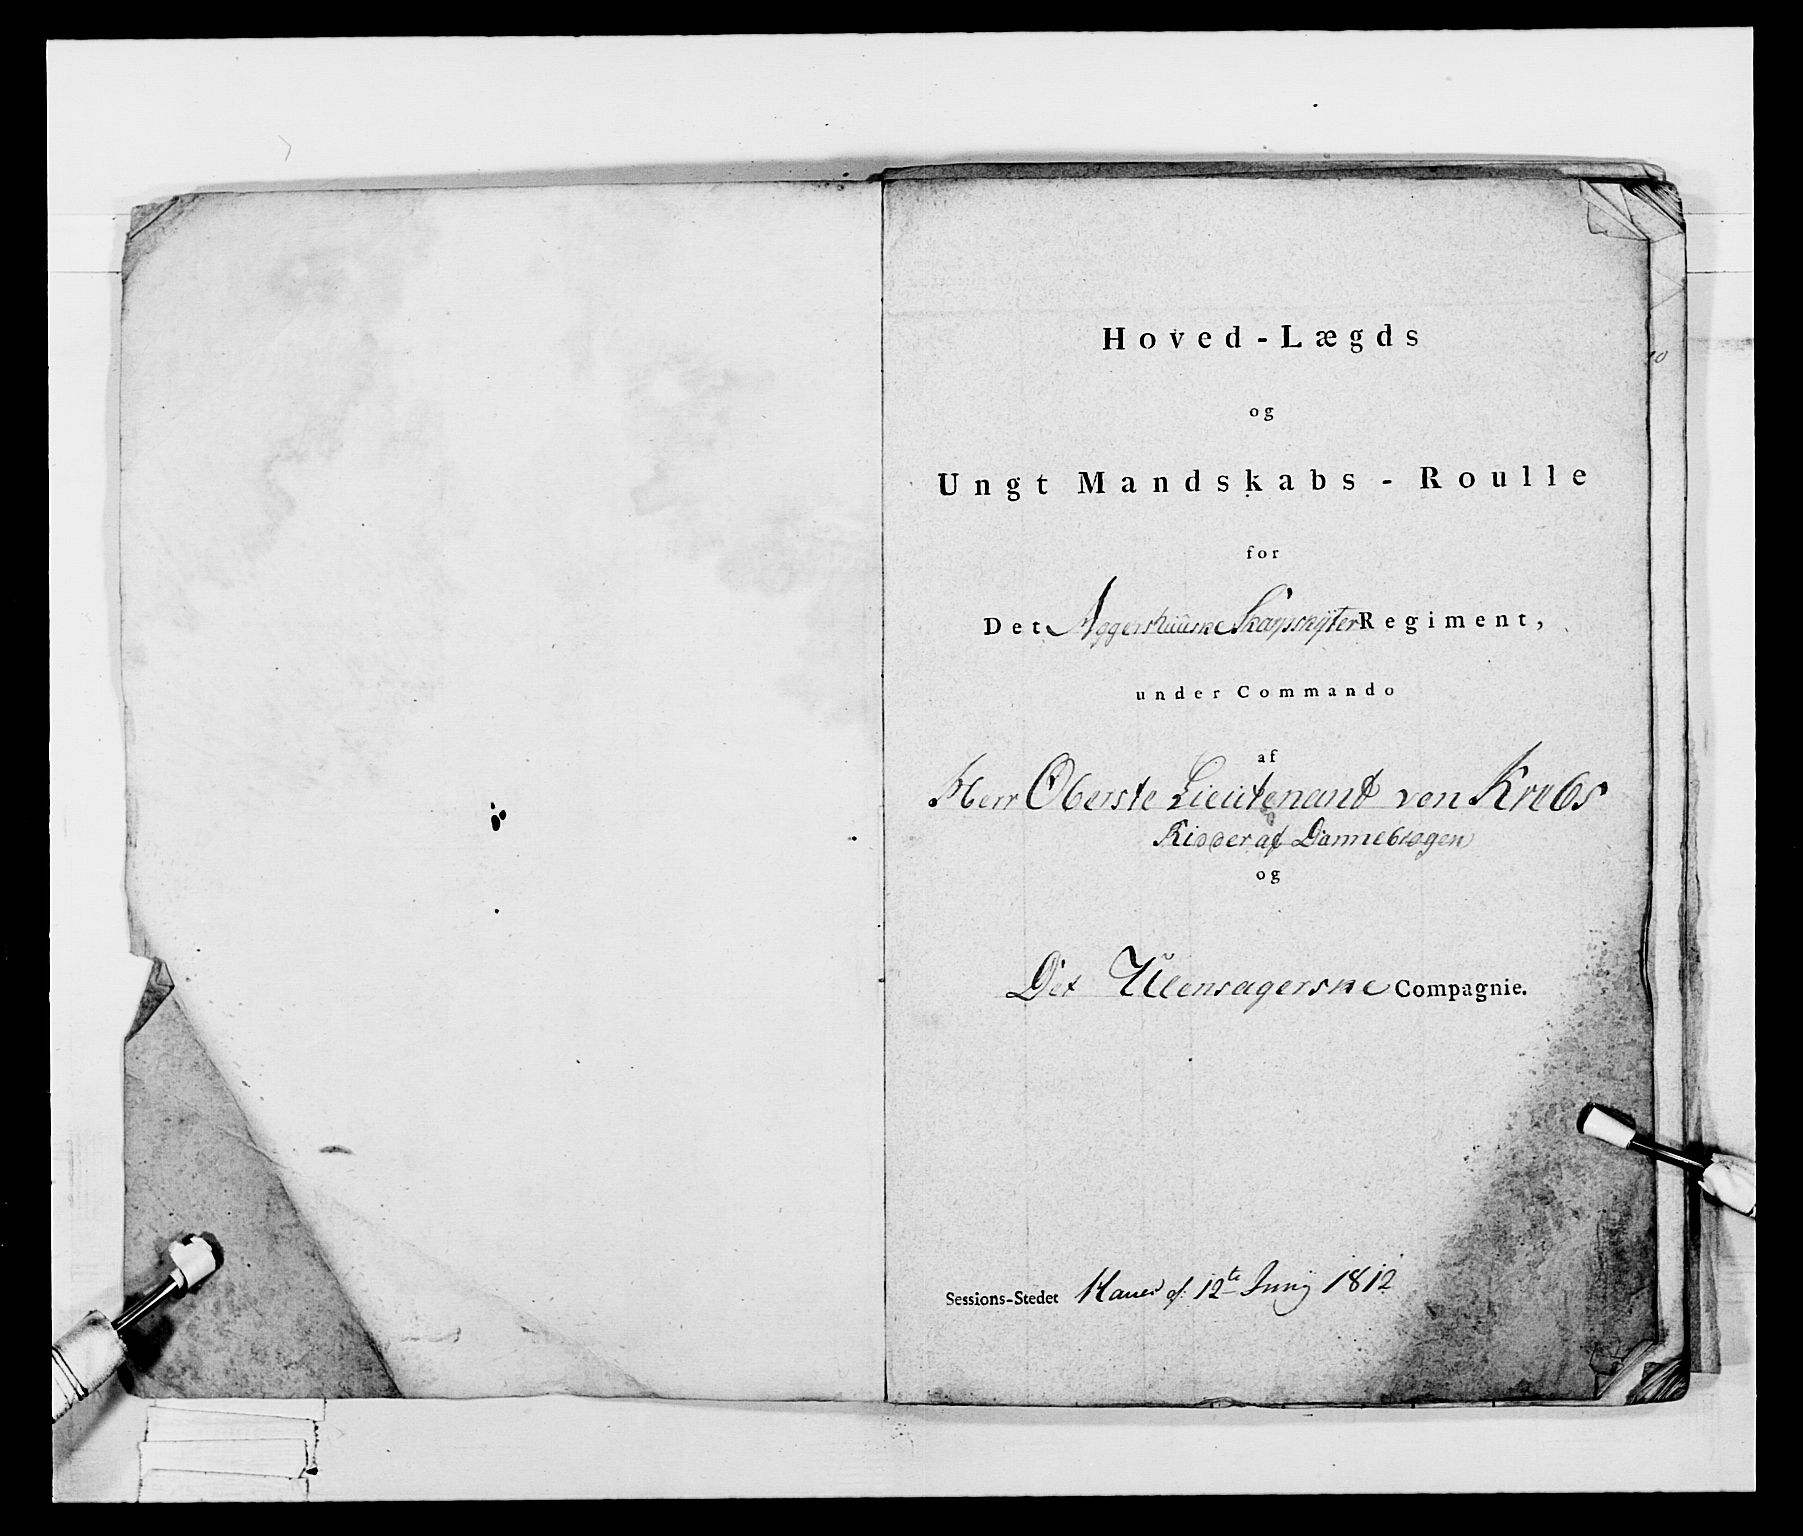 Hoved-Lægds
og
Ungt Mandskabs-Roulle
for
Det Aggershuuske Skarpskytter Regiment,
under Commando
af
Herr Oberste Lieutenant von Krebs
Ridder af Dannebrogen
og
Det Ullensagerske Compagnie.
Sessions-Stedet d: 12te Junij 1812